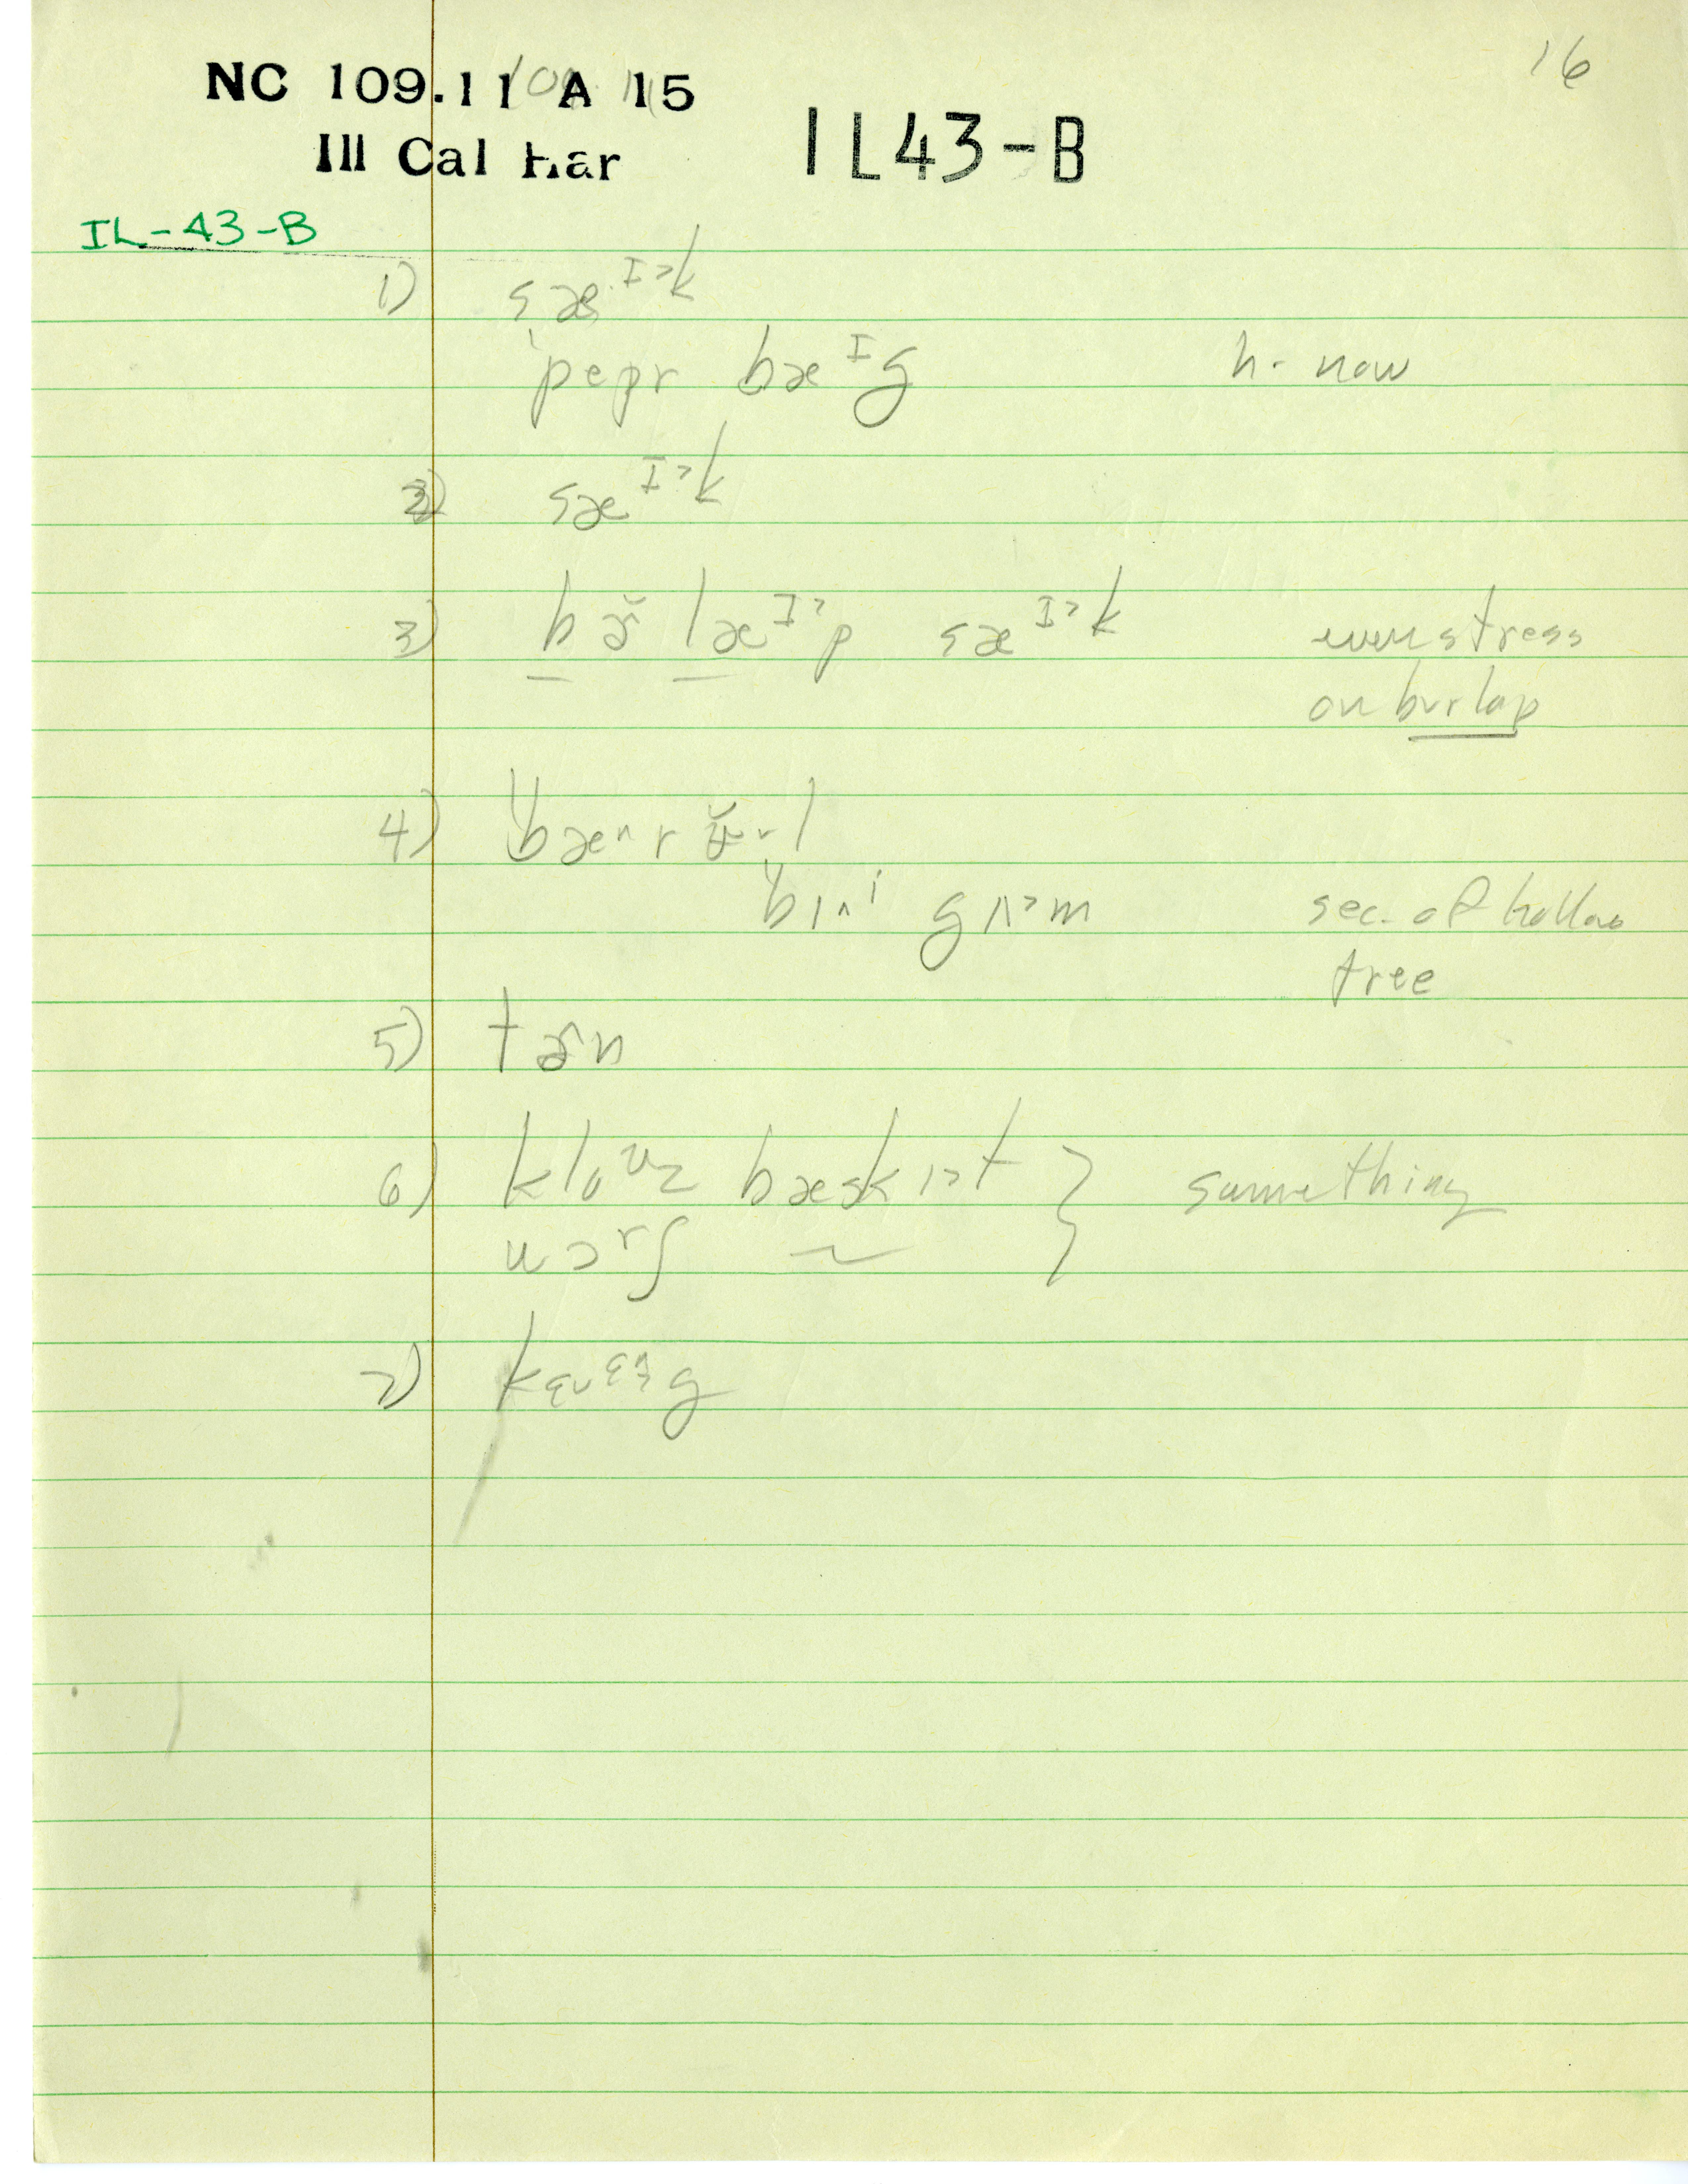 16
NC 109.11 A 15
Ill Cal Har
IL43-B
IL-43-B
1) sæᴵ˃k
pepr bæᴵg h. now
2) sæᴵ˃k
3) bɚ̆ læᴵ˃p sæᴵ˃k even stress
on burlap
4) bæ^r l
bɪ^ⁱ gʌ˃m sec. of hollow
tree
5) tɚn
6) kloᶷz bæskɪ˃t } same thing
wɔʳʃ ~
7) g